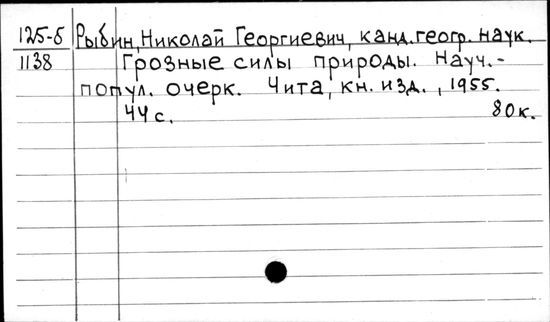 125-б Рыбин, Николай Георгиевич, канд. геогр. наук.
1138 Грозные силы природы. Науч.-
попул. очерк. Чита, кн. изд., 1955.
44 с. 80 к.